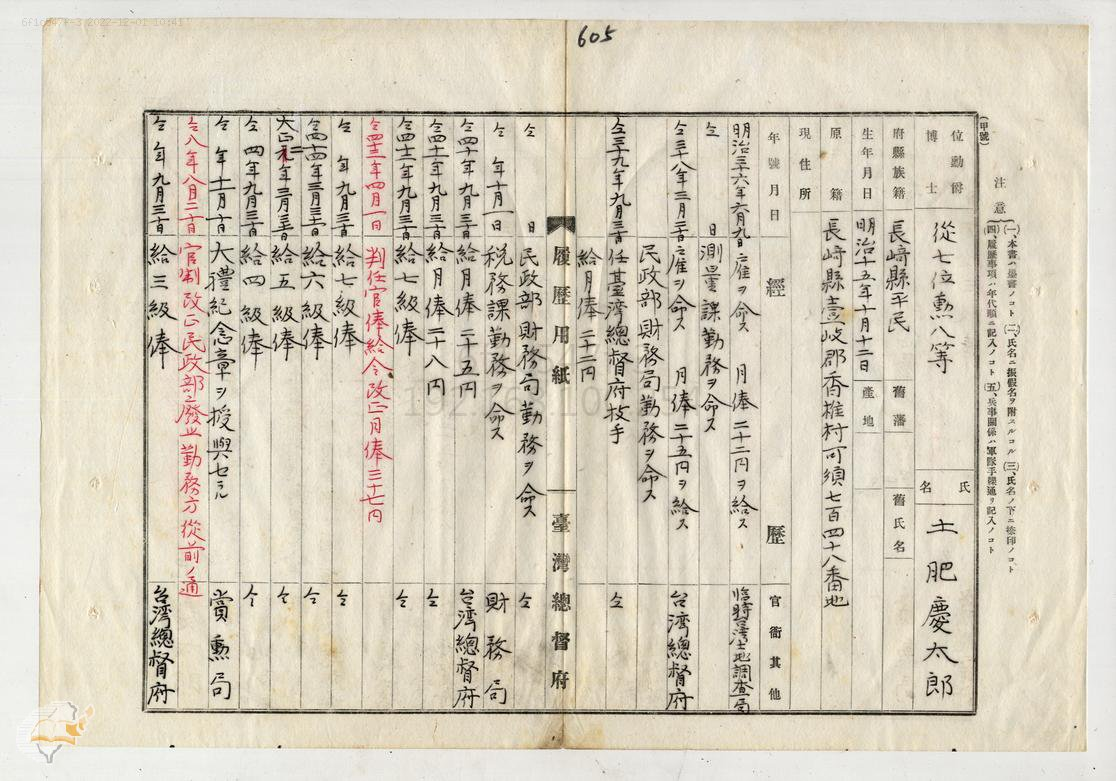 6f18647f-3 2022-12-01 10:41
605
(甲號)
注意
(一)、本書ハ墨書ノコト (二)、氏名ニ振假名ヲ附スルコト (三)、氏名ノ下ニ捺印ノコト
(四)、履歷事項ハ年代順ニ記入ノコト (五)、兵事關係ハ軍隊手牒通リ記入ノコト
位勳爵 博士 從七位勳八等 氏名 土肥慶太郎
府縣族籍 長崎縣平民 舊藩 舊氏名
生年月日 明治十五年十月十二日 產地
原籍 長崎縣壹岐郡香椎村可須七百四十八番地
現住所
年號月日 經歷 官衙其他
明治三十六年六月九日 雇ヲ命ス 月俸二十二円ヲ給ス 臨時台湾土地調查局
仝 日 測量課勤務ヲ命ス
仝三十八年三月三十一日 雇ヲ命ス 月俸二十五円ヲ給ス 台湾總督府
民政部財務局勤務ヲ命ス
仝三十九年九月三十日 任臺湾總督府技手 仝
給月俸二十二円
履歷用紙 臺灣總督府
仝 日 民政部財務局勤務ヲ命ス 仝
仝 年十月一日 税務課勤務ヲ命ス 財務局
仝四十年九月三十日 給月俸二十五円 台湾總督府
仝四十一年九月三十日 給月俸二十八円 仝
仝四十二年九月三十日 給七級俸 仝
仝四十三年四月一日 判任官俸給令改正月俸三十七円
仝 年九月三十日 給七級俸 仝
仝四十四年三月三十一日 給六級俸 仝
大正二年三月三十一日 給五級俸 仝
仝 四年九月三十日 給四級俸 仝
仝 年十一月十日 大禮紀念章ヲ授與セラル 賞勲局
仝八年八月二十日 官制改正民政部ヲ廢止勤務方從前ノ通
仝 年九月三十日 給三級俸 台湾總督府